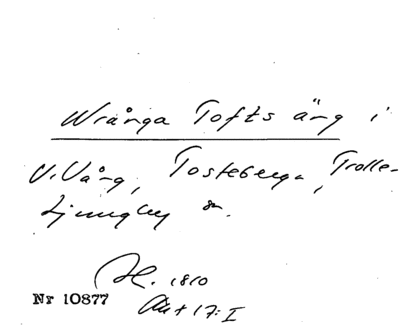 Wrånga Tofts äng i
V. Vång, Tosteberga, Trolle-
Ljungby sn.
H. 1810
Nr 10877
Akt 17: I